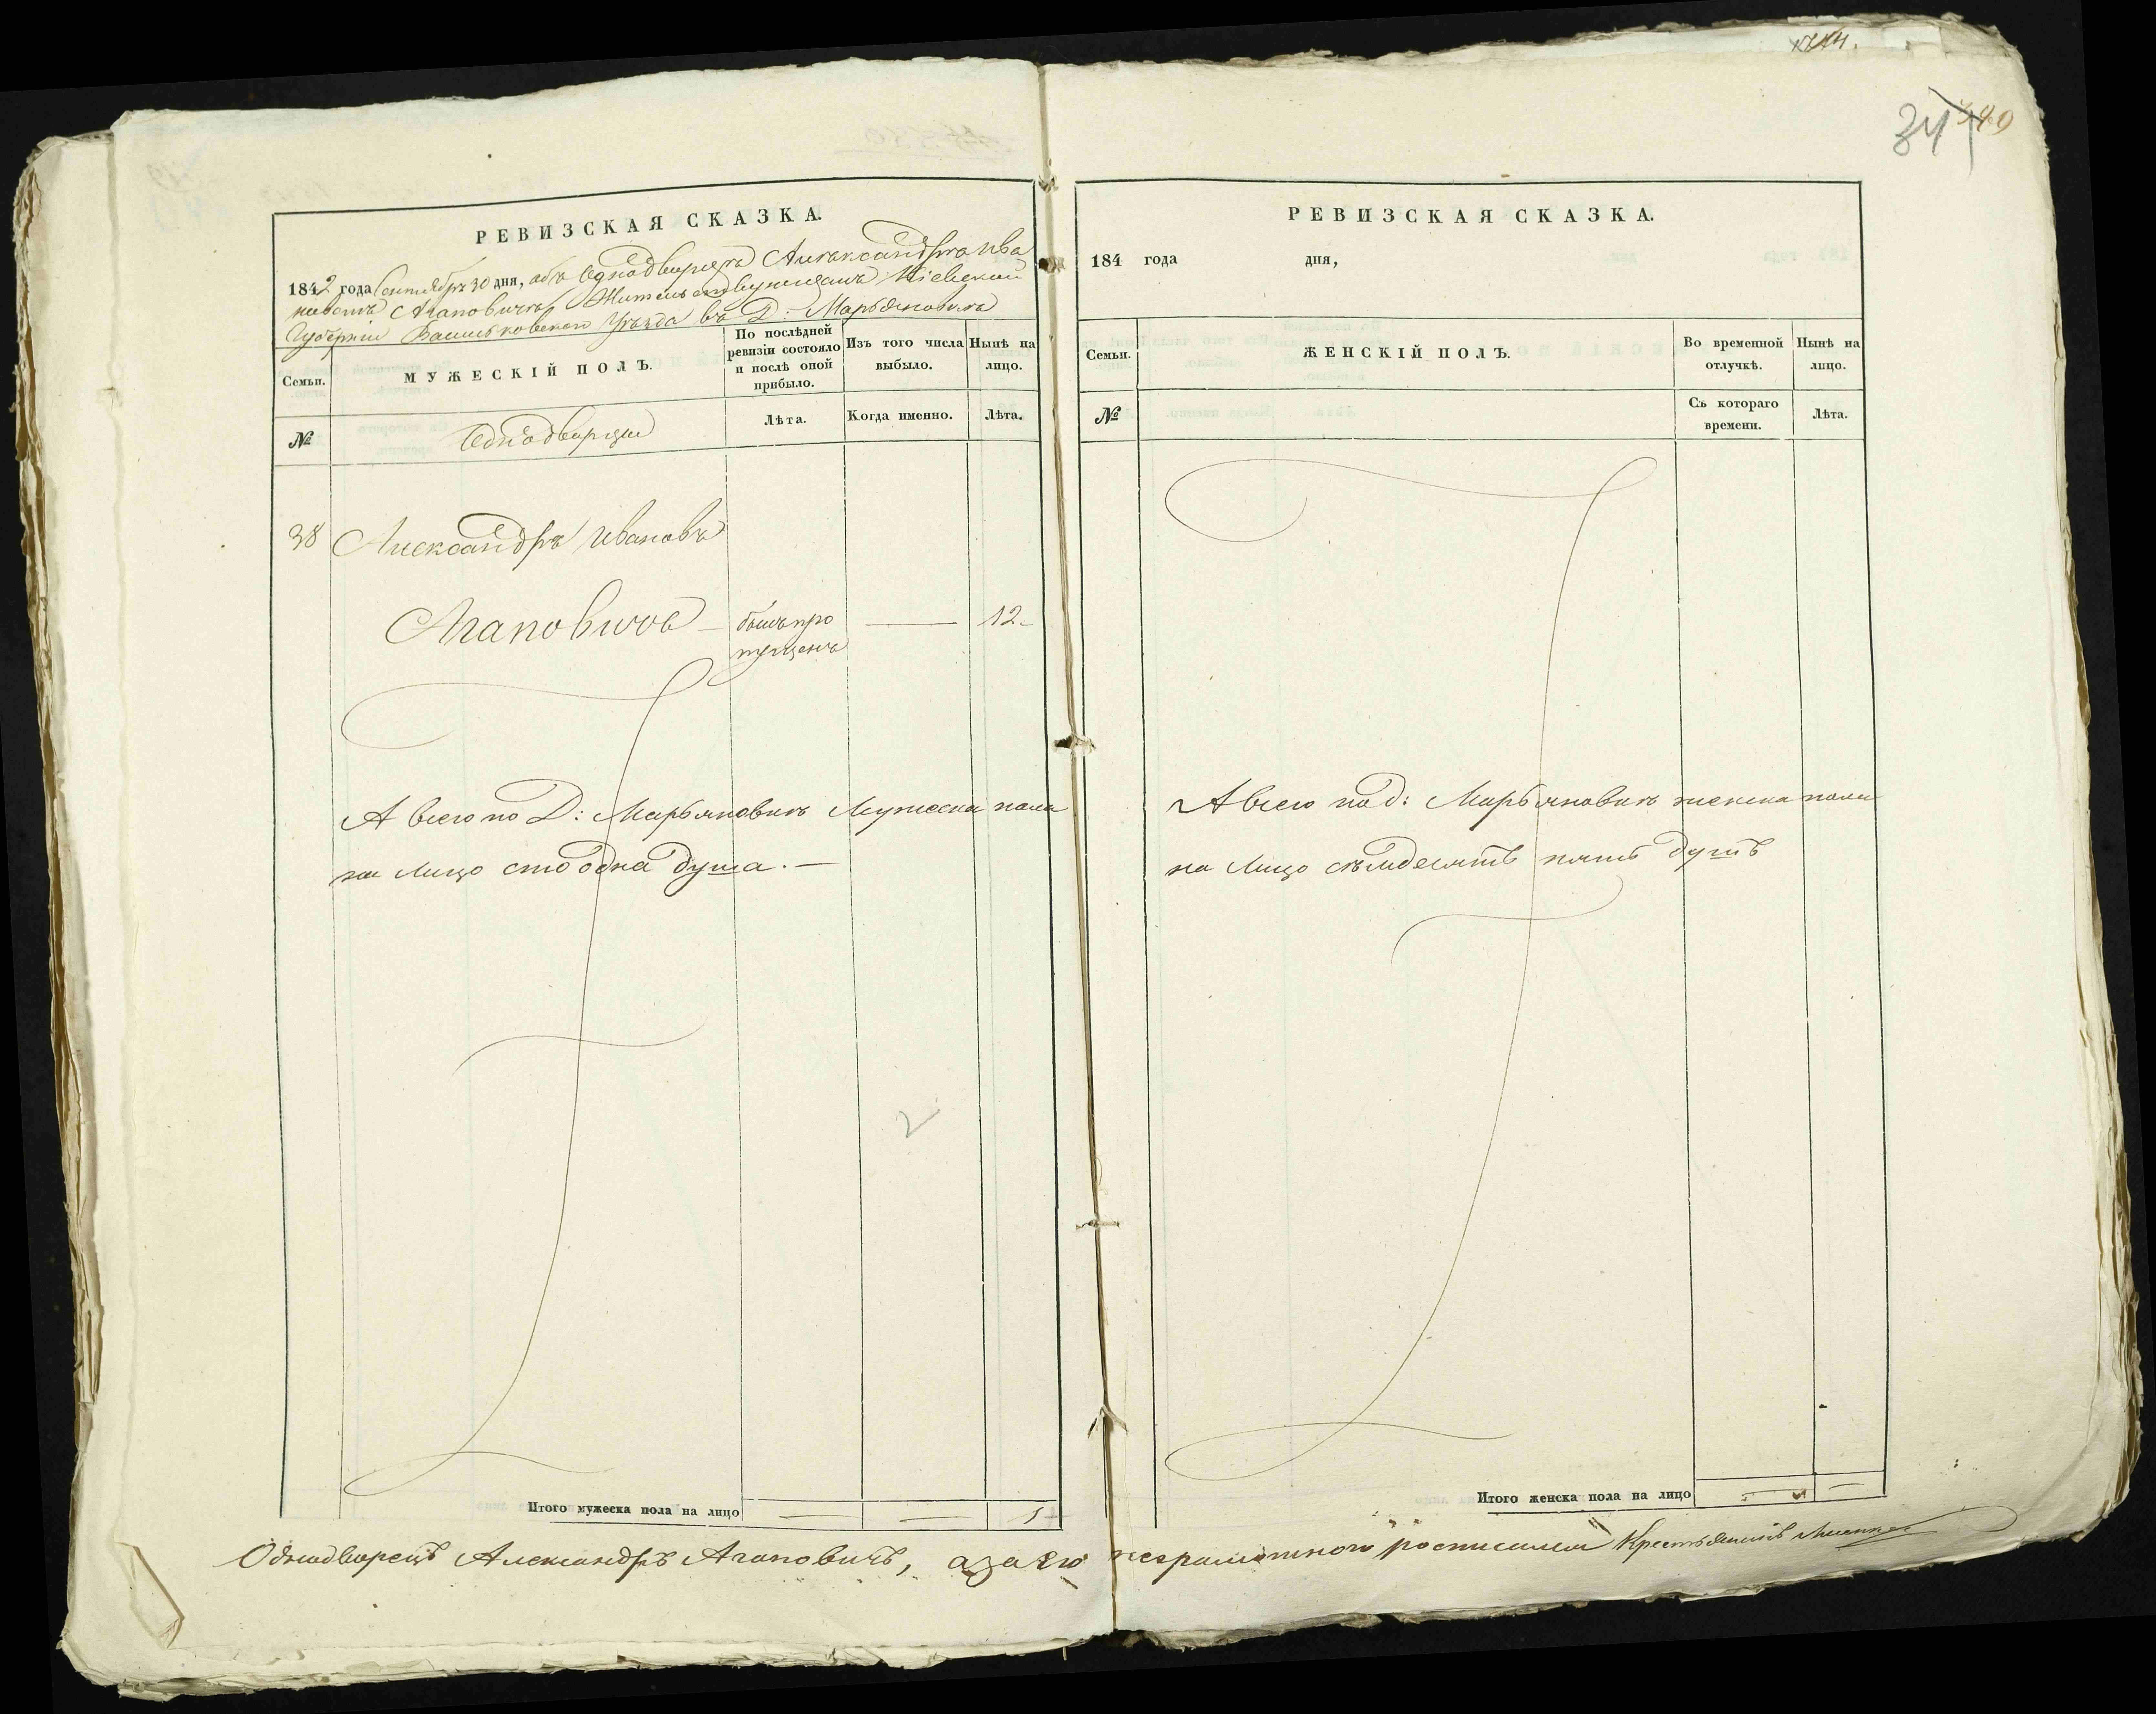 РЕВИЗСКАЯ СКАЗКА.
1842 года Сентября 30 дня, объ Однодворцѣ Александрѣ Ива
новомъ Агановичѣ Жительствующемъ Кіевской
Губерніи Васильковского Уѣзда въ Д: Марьяновкѣ
Семьи.
МУЖЕСКІЙ ПОЛЪ.
По послѣдней ревизіи состояло и послѣ оной прибыло.
Изъ того числа выбыло.
Нынѣ на лицо.
№
Однодворцы
Лѣта.
Когда именно.
Лѣта.
38 Александръ Ивановъ
Агановичъ — былъ про — 12
пущенъ
А всего по Д: Марьяновкѣ Мужеска пола
на лицо сто одна душа. —
2
Итого мужеска пола на лицо — — 1
344
340
РЕВИЗСКАЯ СКАЗКА.
184 года дня,
Семьи.
ЖЕНСКІЙ ПОЛЪ.
Во временной отлучкѣ.
Нынѣ на лицо.
№
Съ котораго времени.
Лѣта.
А всего по д: Марьяновкѣ женска пола
на лицо семдесятъ пять душъ
Итого женска пола на лицо — —
Однодворецъ Александръ Агановичъ, а за его неграмотного росписался Крестьянинъ